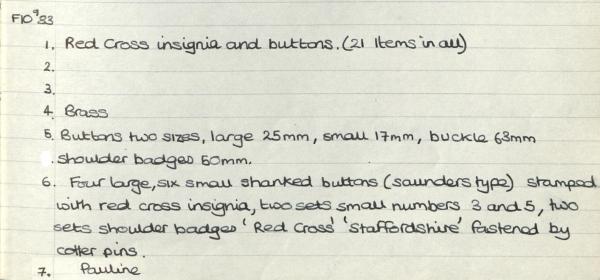 F10 9 33
1. Red Cross insignia and buttons. (21 Items in all)
2.
3.
4. Brass
5. Buttons two sizes, large 25mm, small 17mm, buckle 63mm
shoulder badges 50mm.
6. Four large, six small shanked buttons (saunders type) stamped
with red cross insignia, two sets small numbers 3 and 5, two
sets shoulder badges 'Red Cross' 'Staffordshire' fastened by
cotter pins.
7. Pauline